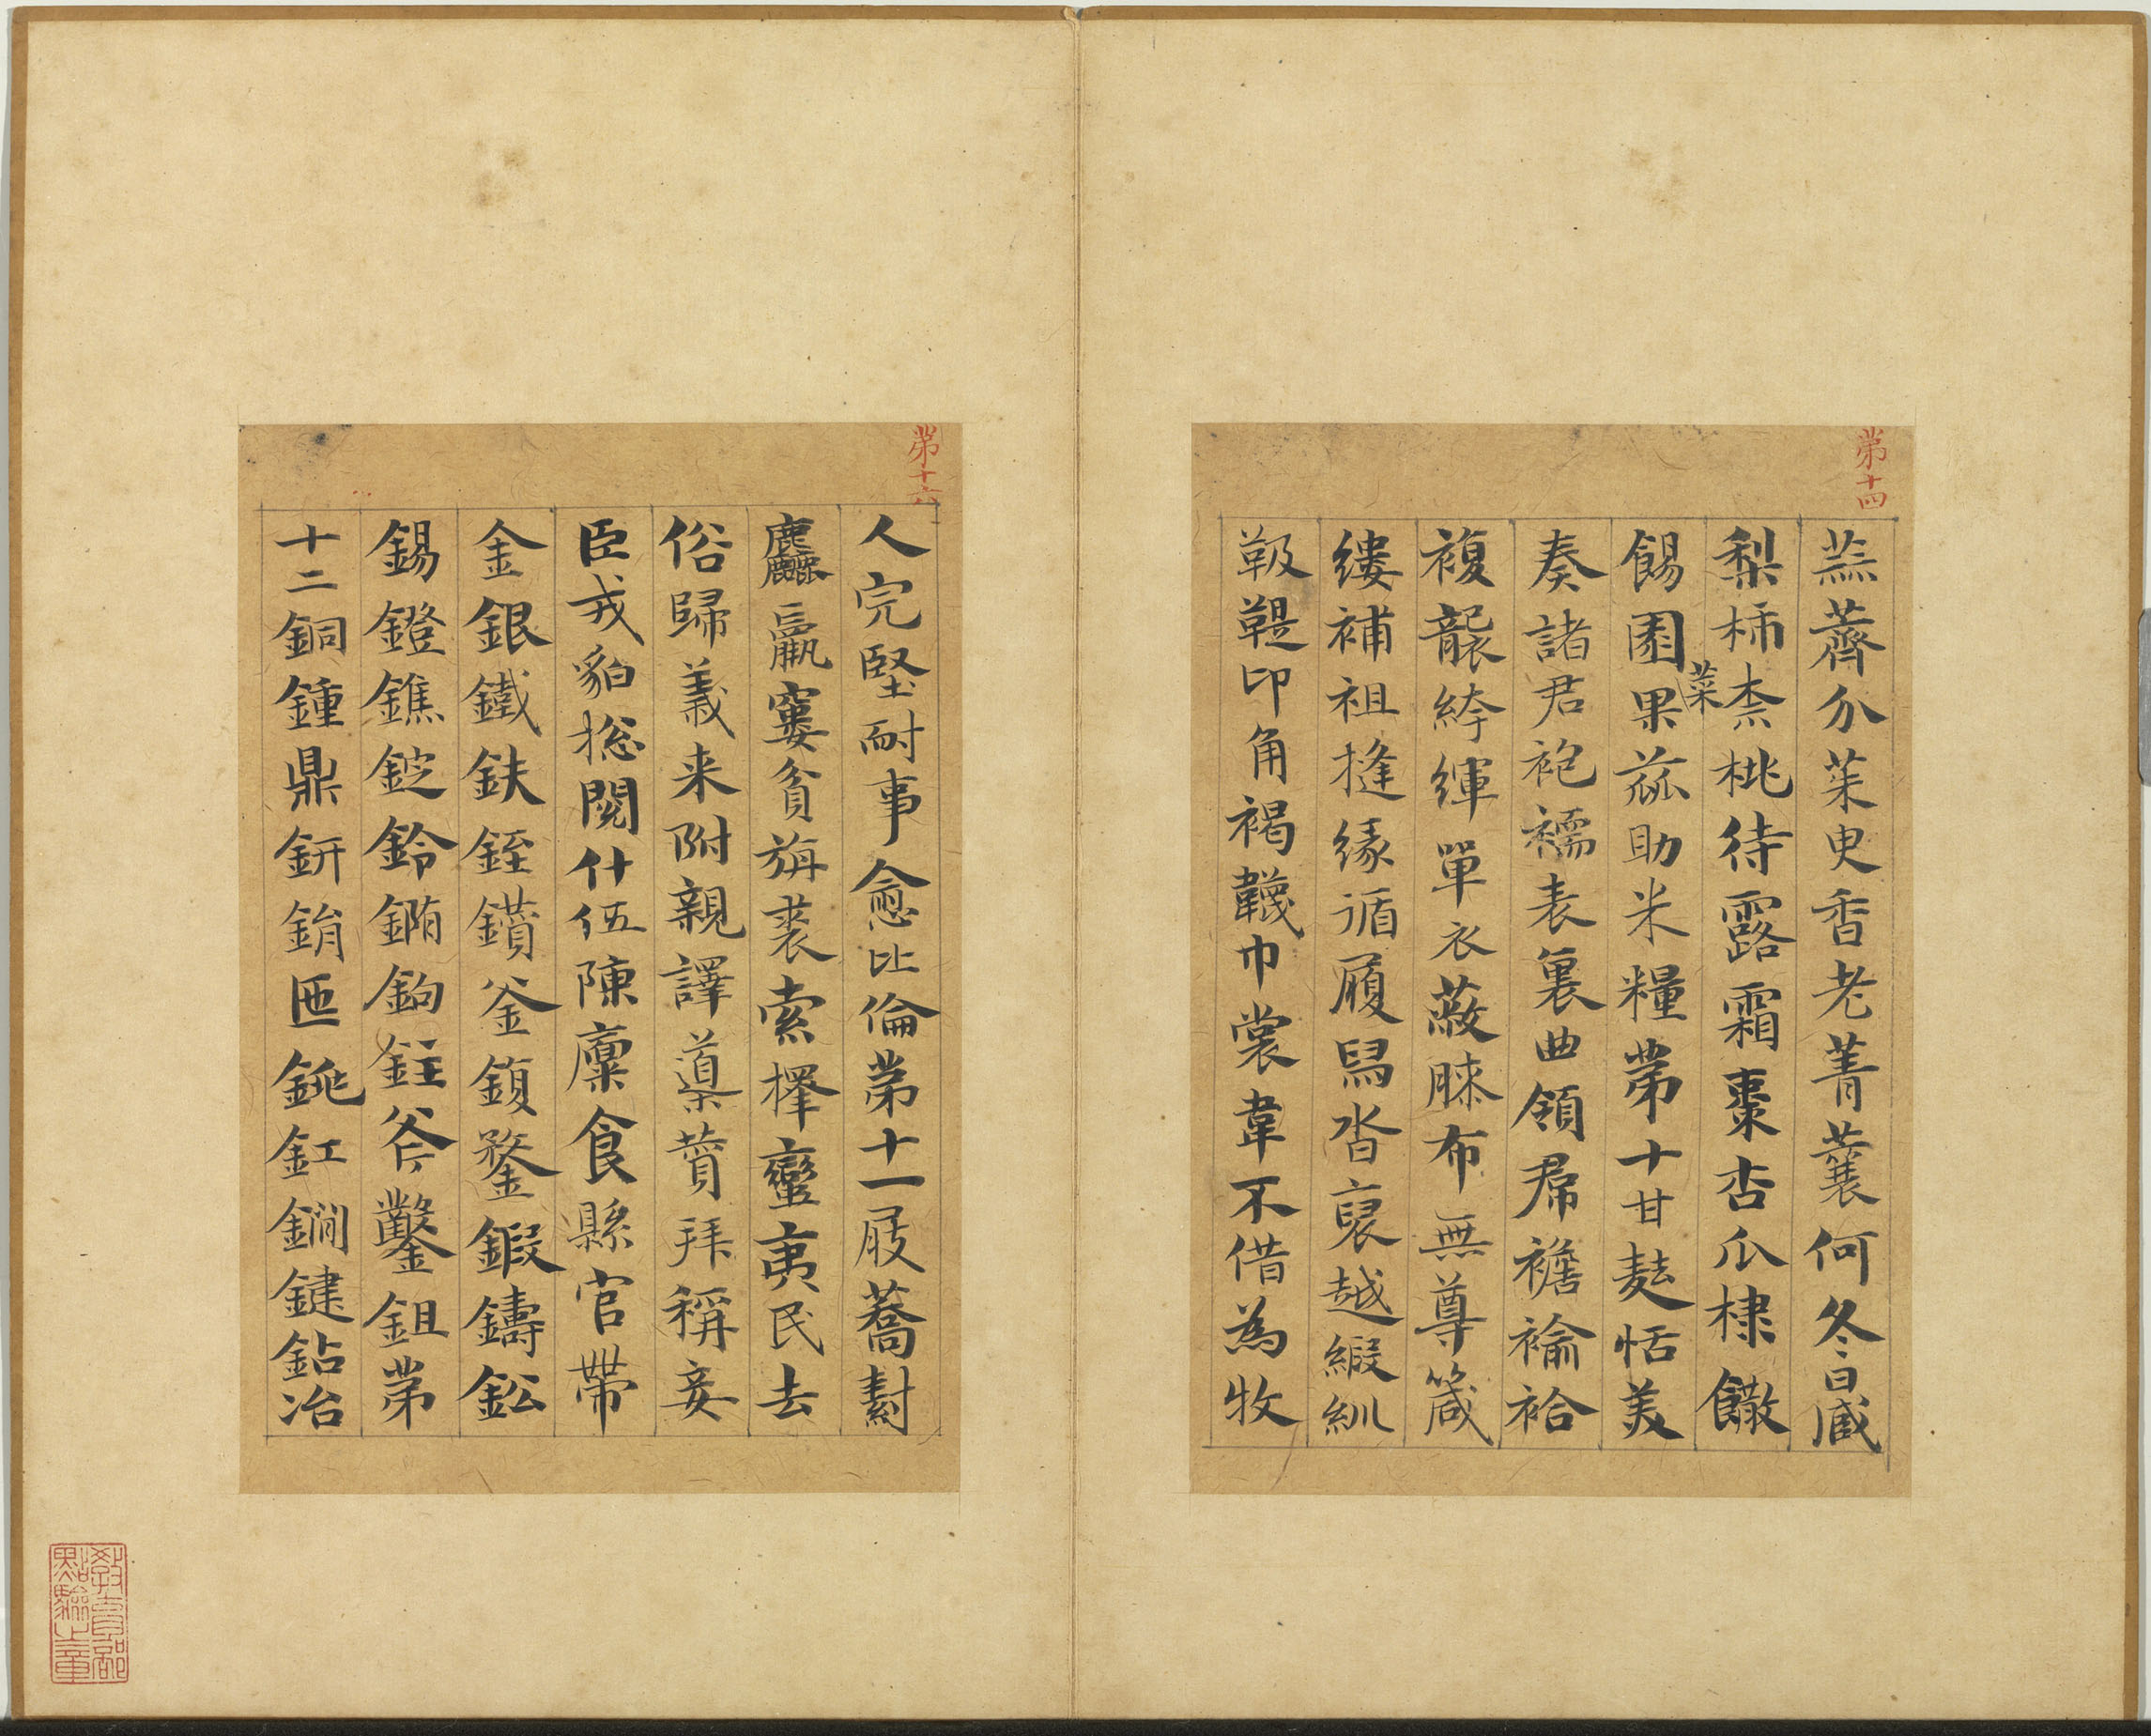 第十四
蒜薺介茱臾香老菁蘘何冬日臧
梨柿柰桃待露霜棗杏瓜棣饊
餳園菜果蓏助米糧第十甘麩恬美
奏諸君袍襦表裏曲領帬襜褕袷
複襲絝緷單衣蔽膝布無尊箴
縷補袒摓緣循履舄沓裒越緞紃
靸鞮卬角褐韤巾裳韋不借為牧
第十六
人完堅耐事愈比倫第十一屐蕎
麤羸窶貧旃裘索擇蠻夷民去
俗歸義来附親譯導贊拜稱妾
臣戎貊揔閱什伍陳廩食縣官帶
金銀鐵鈇銍鑽釜鍑鍪鍛鑄鈆
錫鐙鐎錠鈴鉤鉒斧鑿鉏第
十二銅鍾鼎鈃鋗匜銚釭鐧鍵鉆冶
教育部
點驗之章